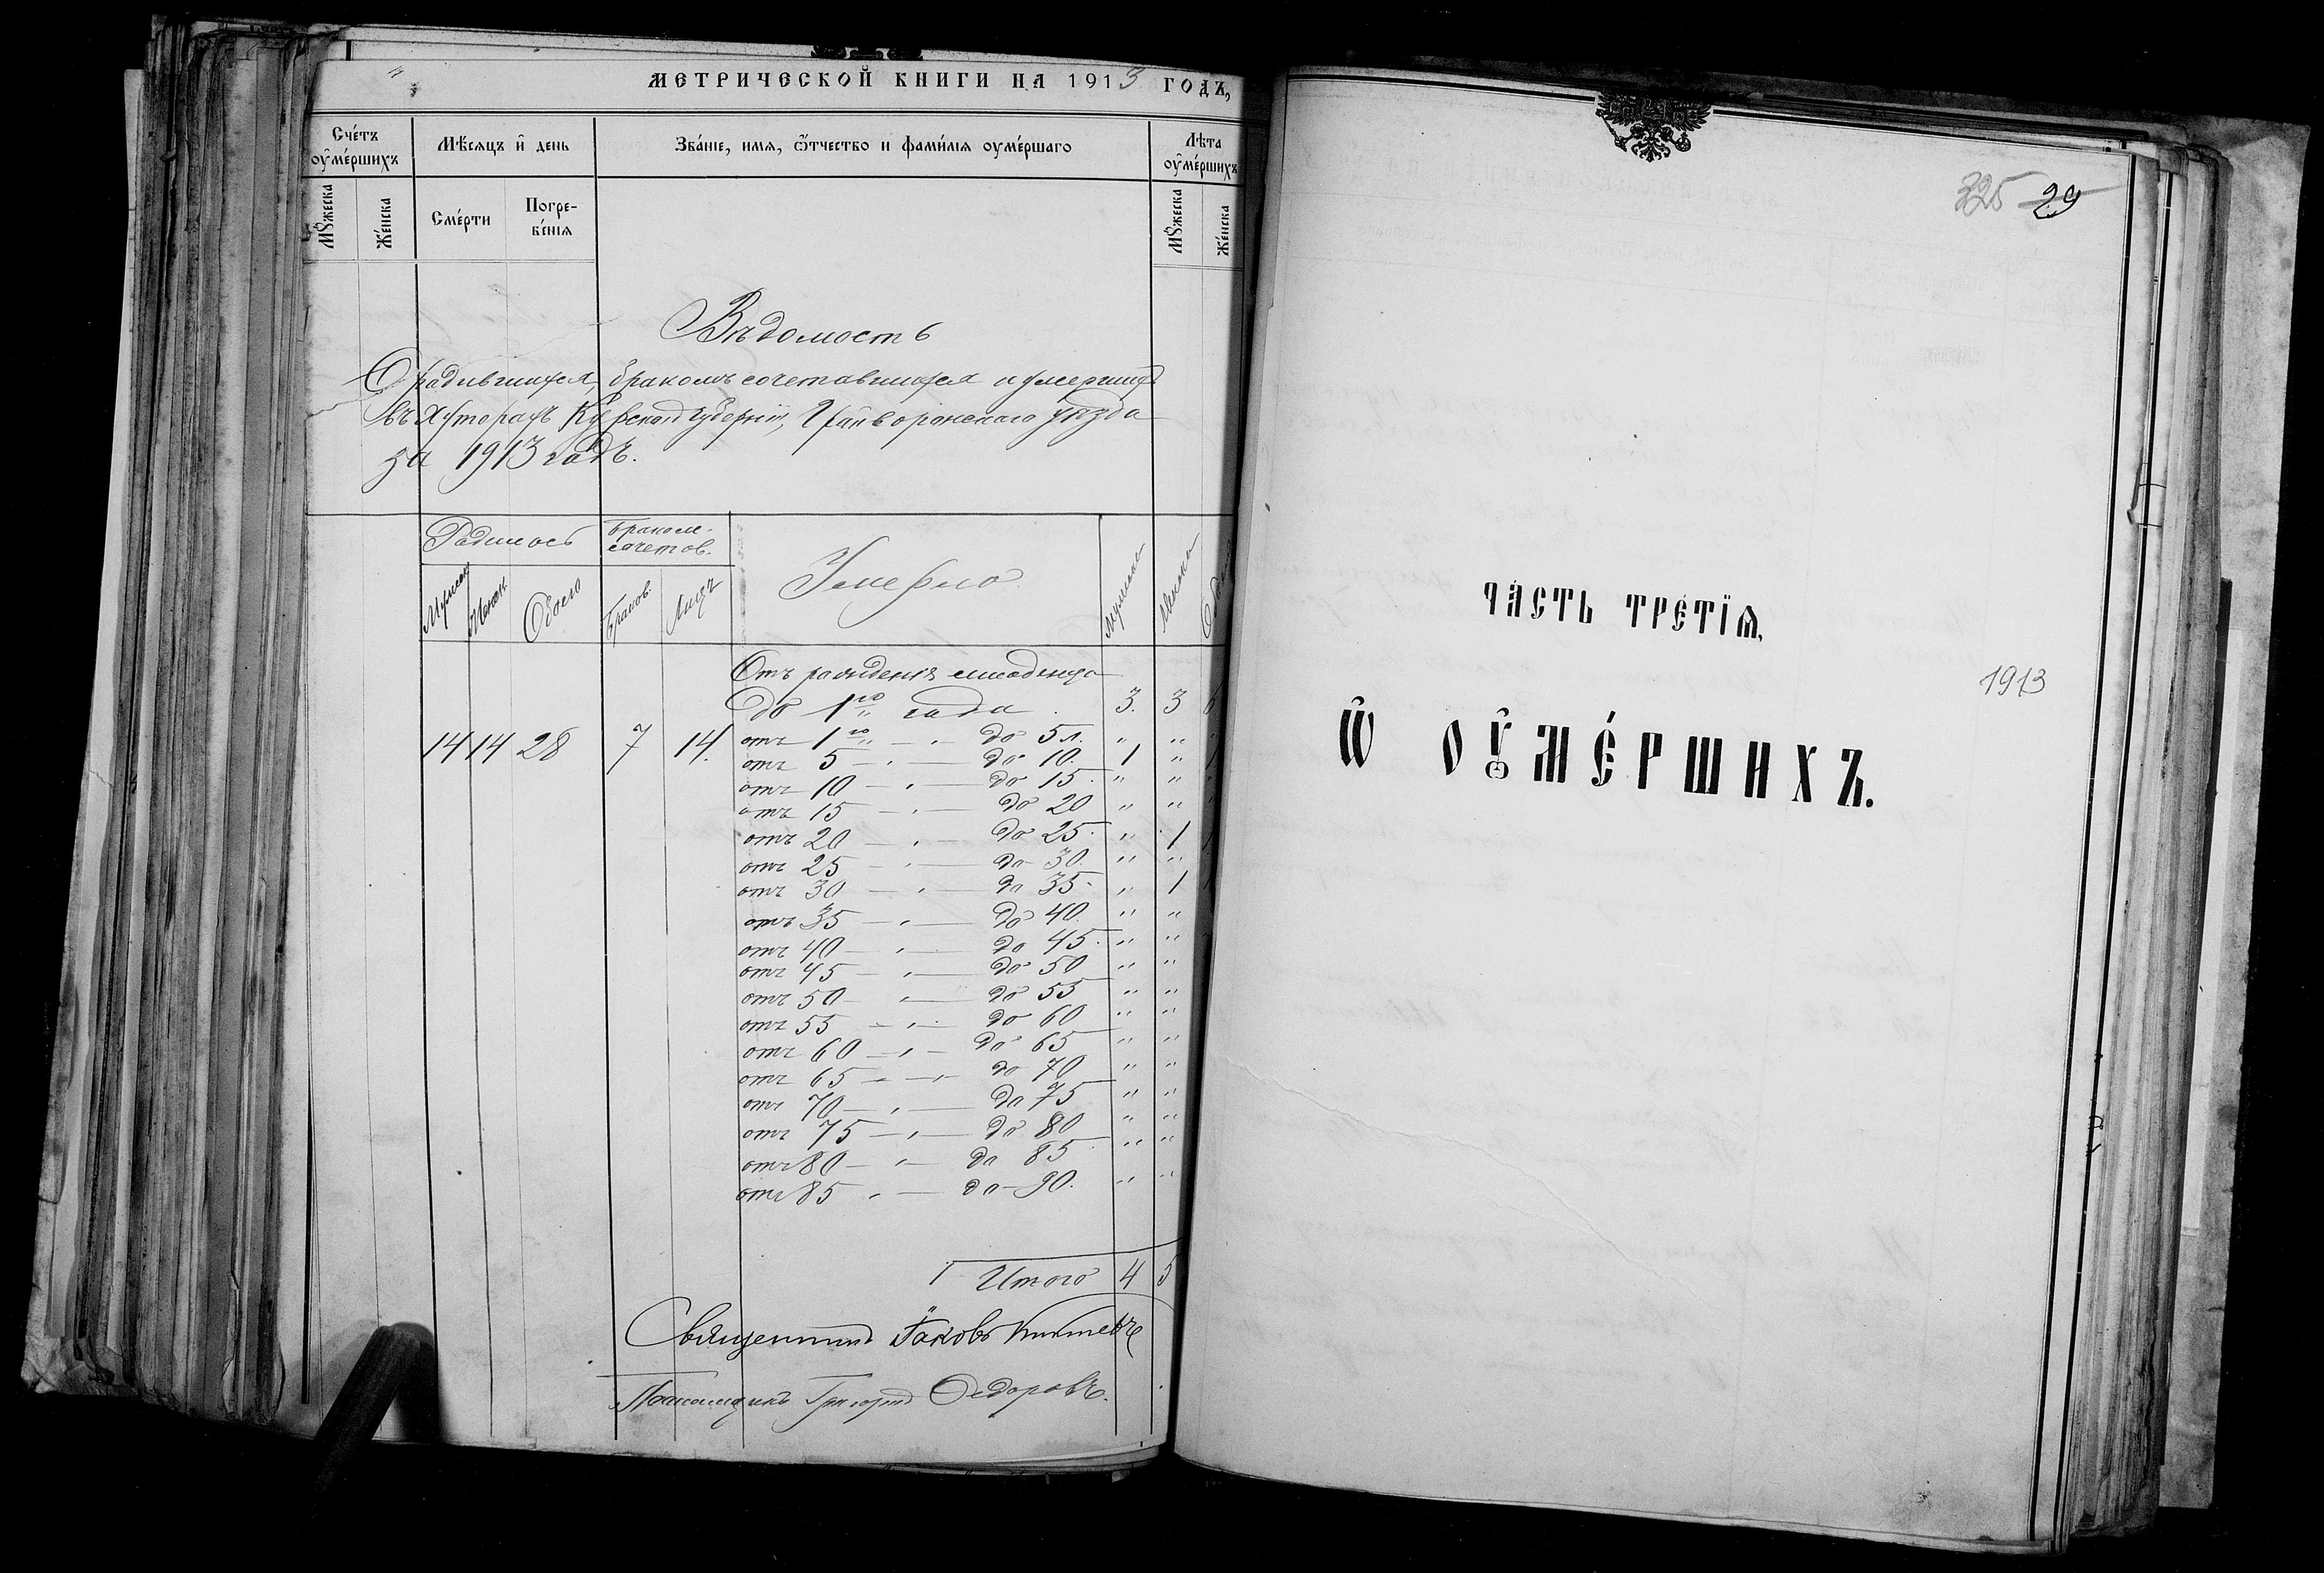 МЕТРИЧЕСКОЙ КНИГИ НА 1913 ГОДЪ,
Сче́тъ оуме́ршихъ
Мѣ́сяцъ и день
Зва́ніе, имя, ѿтчество и фами́лія оуме́ршаго
Лѣта оуме́ршихъ
Мꙋжеска
Же́нска
Сме́рти
Погре-
бе́нія
Мꙋжеска
Же́нска
Вѣдомость
О родившихся, бракомъ сочетавшихся и умершихъ
въ хуторахъ Курской губерніи, Грайворонскаго уѣзда
за 1913 годъ.
Родилось
Браком.
сочетов.
Умерло
Мужеск.
Женск.
Обоего
Браков.
Лицъ
Мужеска
Женска
Отъ рожденія младенца
до 1го года 3. 3 6
14 14 28 7 14. отъ 1го — " — до 5 л. " "
отъ 5 — " — до 10. 1 " 1
отъ 10 — " — до 15 " "
отъ 15 — " — до 20 " "
отъ 20 — " — до 25. " 1 1
отъ 25 — " — до 30. " "
отъ 30 — " — до 35. " 1 1
отъ 35 — " — до 40. " "
отъ 40 — " — до 45. " "
отъ 45 — " — до 50 " "
отъ 50 — " — до 55 " "
отъ 55 — " — до 60 " "
отъ 60 — " — до 65 " "
отъ 65 — " — до 70 " "
отъ 70 — " — до 75 " "
отъ 75 — " — до 80 " "
отъ 80 — " — до 85 " "
отъ 85 " — до 90. " "
Итого 4 5
Священникъ Іаковъ
Псаломщикъ Григорій Федоровъ.
325 29
ЧАСТЬ ТРЕ́ТЇѦ,
1913
Ѽ ОУМЕ́РШИХЪ.